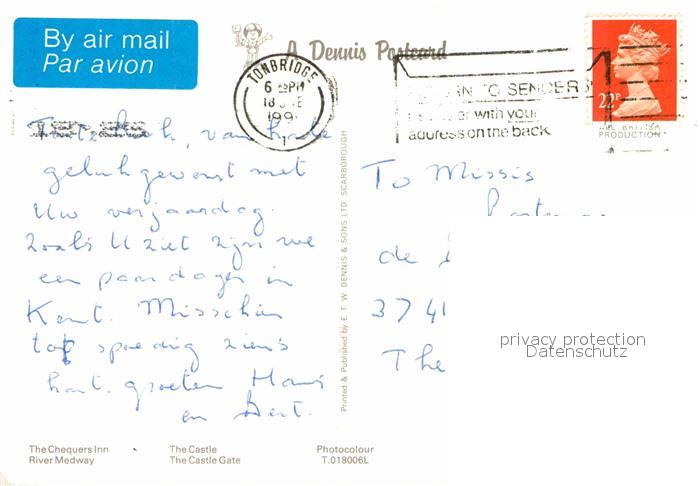 By air mail
Par avion
A Dennis Postcard
TONBRIDGE
6 PM
18
199
TO SENDER
with your
address on the back
22P
ALL BRITISH
PRODUCTION
van harte
gelukgewenst met
Uw verjaardag.
Zoals U ziet zijn we
een paar dagen in
Kent. Misschien
tot spoedig ziens
hart. groeten Hans
en Bert.
To Missis
de
3741
The
privacy protection
Datenschutz
Printed & Published by E. T. W. DENNIS & SONS LTD. SCARBOROUGH
The Chequers Inn
River Medway
The Castle
The Castle Gate
Photocolour
T.018006L